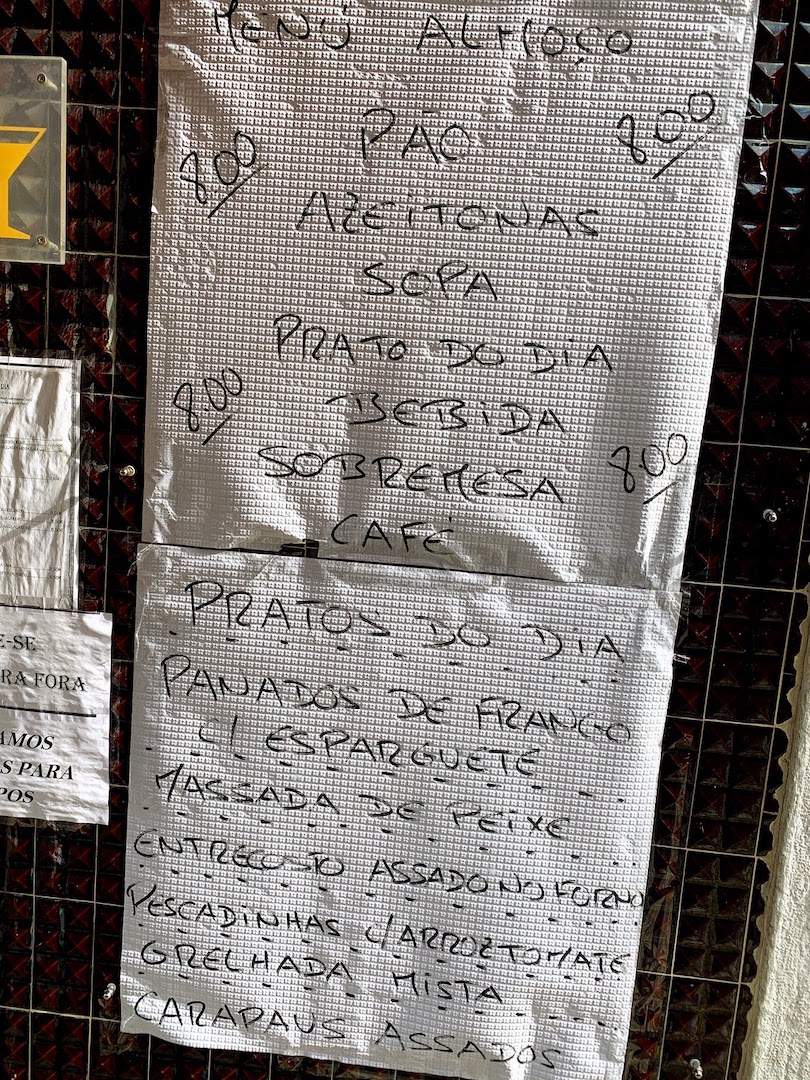 MENÚ ALMOÇO
8.00 PÃO 8.00
AZEITONAS
SOPA
PRATO DO DIA
8.00 BEBIDA
SOBREMESA 8.00
CAFÉ
PRATOS DO DIA
PANADOS DE FRANGO
C/ ESPARGUETE
MASSADA DE PEIXE
ENTRECOSTO ASSADO NO FORNO
PESCADINHAS C/ARROZ TOMATE
GRELHADA MISTA
CARAPAUS ASSADOS
E-SE
RA FORA
AMOS
S PARA
POS